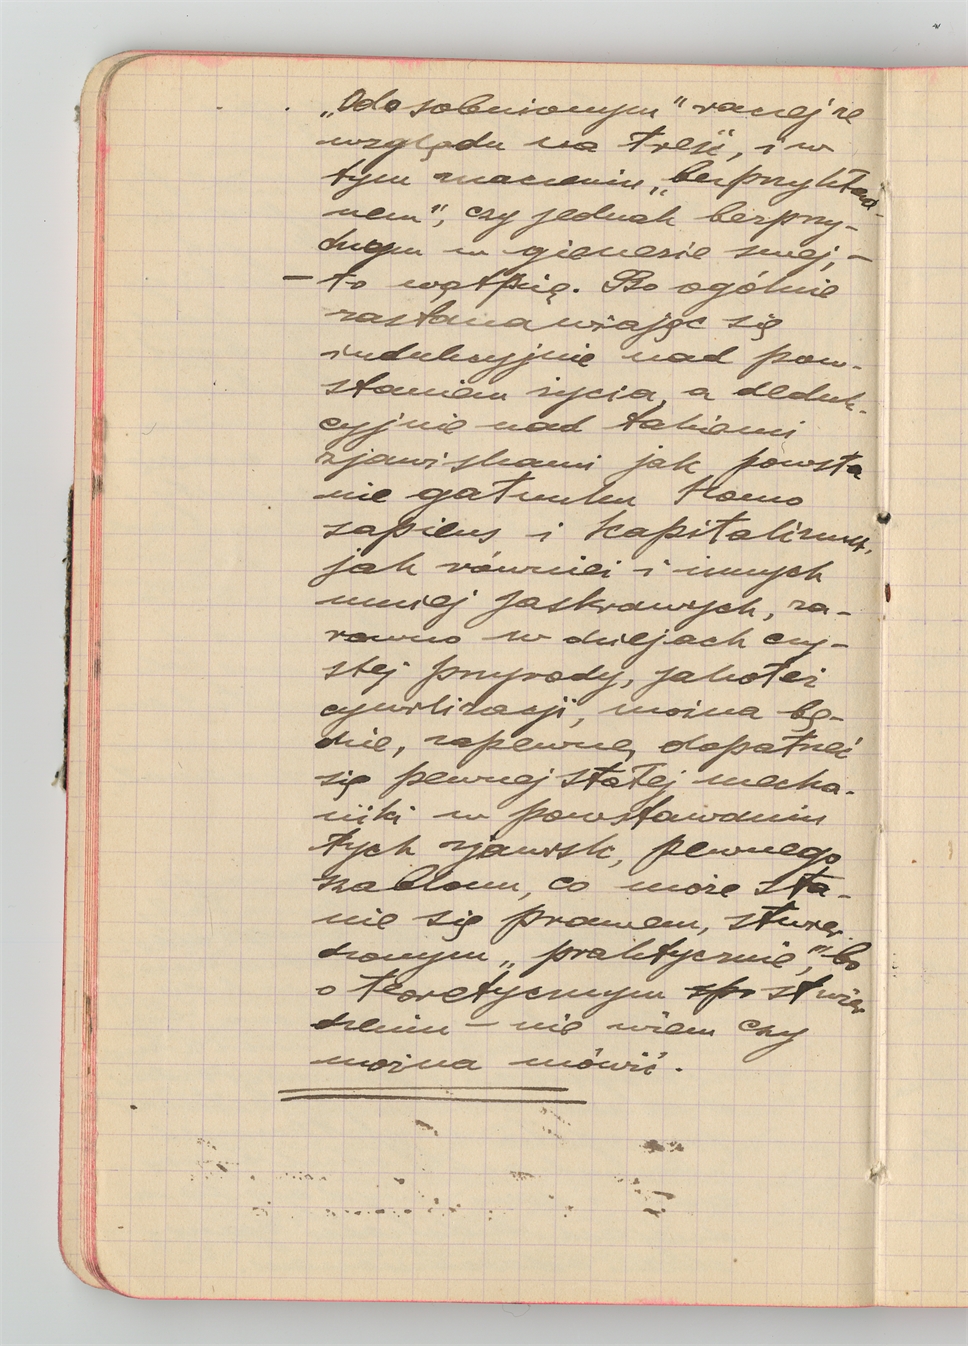 „Odosobnionym" raczej ze
względu na treść, i w
tym znaczeniu „bezprzykład-
nem", czy jednak bezprzy-
dnym w gienezie swej, —
— to wątpię. Bo ogólnie
zastanawiając się
indukcyjnie nad pow-
staniem życia, a deduk-
cyjnie nad takiemi
zjawiskami jak powsta
nie gatunku Homo
sapiens i kapitalizmu,
jak również i innych
mniej jaskrawych, za-
równo w dziejach czy-
stej przyrody, jakoteż
cywilizacji, można bę-
dzie, zapewne, dopatrzeć
się pewnej stałej mecha-
niki w powstawaniu
tych zjawisk, pewnego
szablonu, co może sta-
nie się prawem, stwier
dzonym „praktycznie," bo
o teoretycznym stwier
dzeniu — nie wiem czy
można mówić.